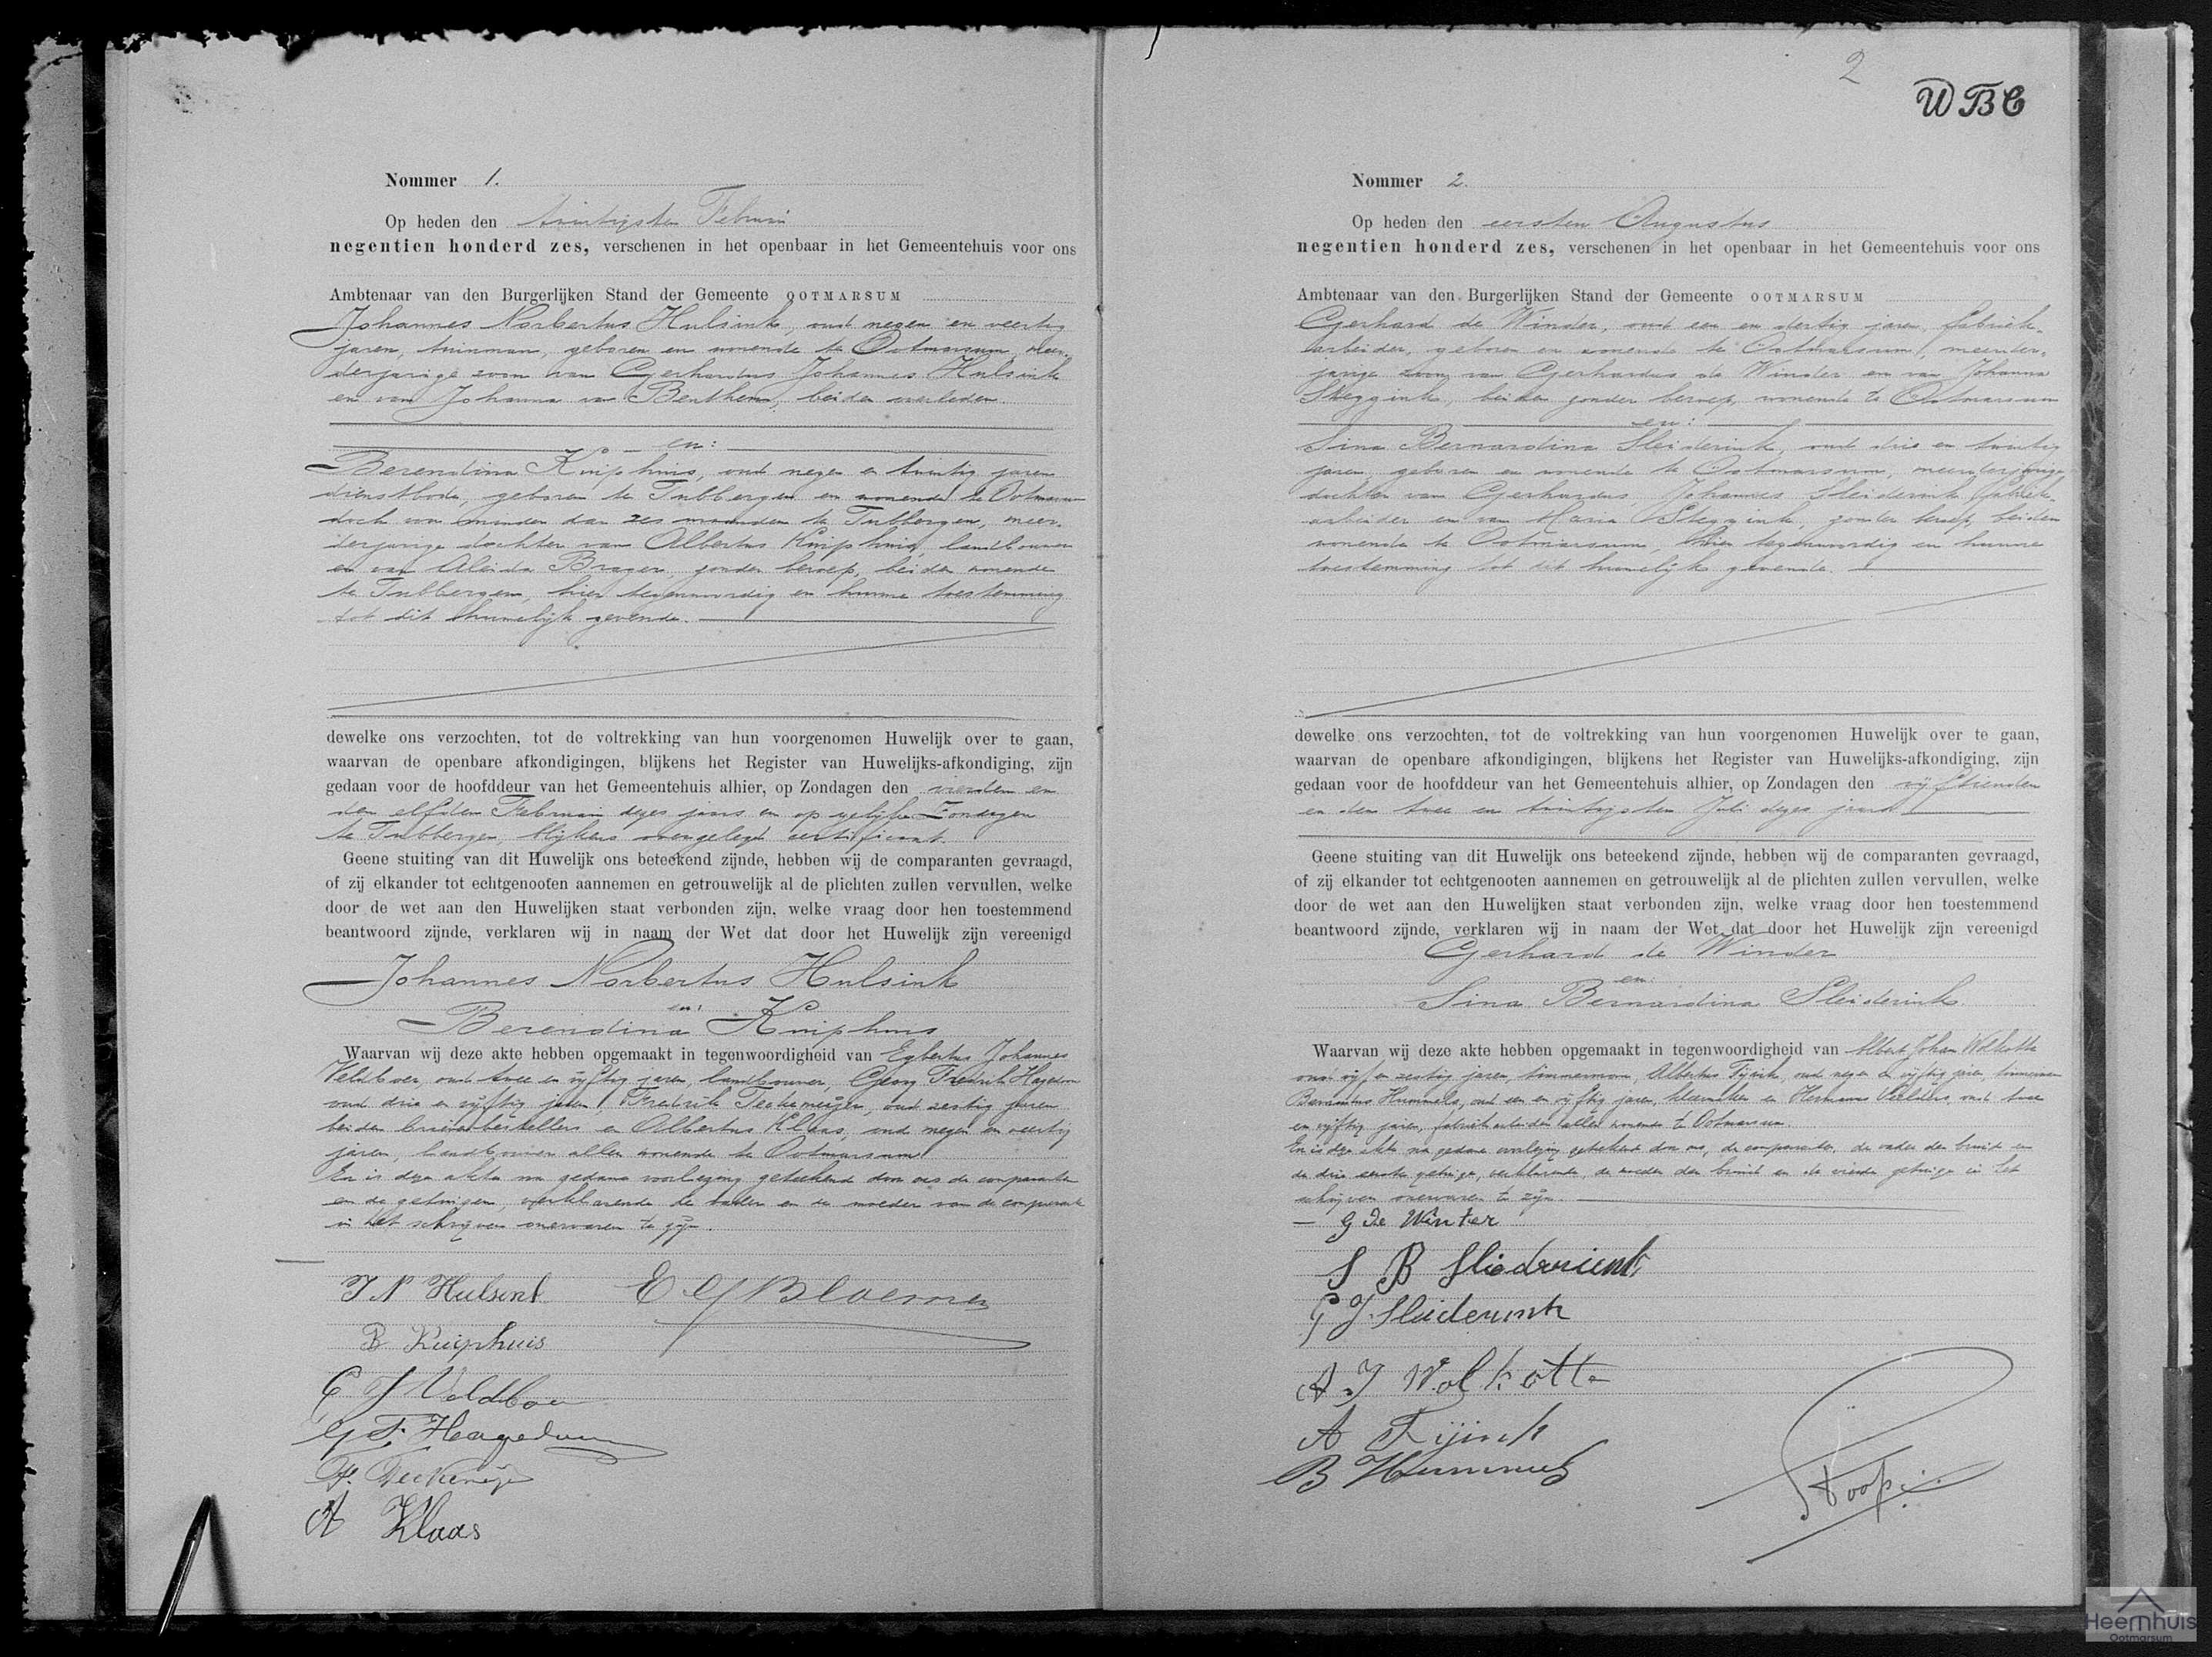 Nommer 1.
Op heden den twintigsten Februari
negentien honderd zes, verschenen in het openbaar in het Gemeentehuis voor ons
Ambtenaar van den Burgerlijken Stand der Gemeente OOTMARSUM
Johannes Norbertus Hulsink, oud negen en veertig
jaren, tuinman, geboren en wonende te Ootmarsum, meer-
derjarige zoon van Gerhardus Johannes Hulsink
en van Johanna van Benthem, beiden overleden
en:
Berendina Kuiphuis, oud negen en twintig jaren
dienstbode, geboren te Tubbergen en wonende te Ootmarsum
doch voor minder dan zes maanden te Tubbergen, meer-
derjarige dochter van Albertus Kuiphuis, landbouwer
en van Aleida Brager, zonder beroep, beiden wonende
te Tubbergen, hier tegenwoordig en hunne toestemming
tot dit huwelijk gevende.
dewelke ons verzochten, tot de voltrekking van hun voorgenomen Huwelijk over te gaan,
waarvan de openbare afkondigingen, blijkens het Register van Huwelijks-afkondiging, zijn
gedaan voor de hoofddeur van het Gemeentehuis alhier, op Zondagen den vierden en
den elfden Februari dezes jaars en op gelijke Zondagen
te Tubbergen, blijkens overgelegd certificaat.
Geene stuiting van dit Huwelijk ons beteekend zijnde, hebben wij de comparanten gevraagd,
of zij elkander tot echtgenooten aannemen en getrouwelijk al de plichten zullen vervullen, welke
door de wet aan den Huwelijken staat verbonden zijn, welke vraag door hen toestemmend
beantwoord zijnde, verklaren wij in naam der Wet dat door het Huwelijk zijn vereenigd
Johannes Norbertus Hulsink
en:
Berendina Kuiphuis
Waarvan wij deze akte hebben opgemaakt in tegenwoordigheid van Egbertus Johannes
Veldboer, oud twee en vijftig jaren, landbouwer, Georg Fredrik Hagedoorn
oud drie en vijftig jaren, Fredrik Teekemeijer, oud zestig jaren
beiden brievenbestellers en Albertus Klaas, oud negen en veertig
jaren, landbouwer allen wonende te Ootmarsum
En is deze akte na gedane voorlezing geteekend door ons de comparanten
en de getuigen, verklarende de vader en de moeder van de comparante
in het schrijven onervaren te zijn.
J N Hulsink E G Bloemen
B Kuiphuis
E J Veldboer
G F Hagedoorn
F. Teekemeijer
A Klaas
2
WBC
Nommer 2.
Op heden den eersten Augustus
negentien honderd zes, verschenen in het openbaar in het Gemeentehuis voor ons
Ambtenaar van den Burgerlijken Stand der Gemeente OOTMARSUM
Gerhard de Winder, oud een en dertig jaren, fabriek-
arbeider, geboren en wonende te Ootmarsum, meerder-
jarige zoon van Gerhardus de Winder en van Johanna
Steggink, beiden zonder beroep, wonende te Ootmarsum
en:
Sina Bernardina Sleiderink, oud drie en twintig
jaren, geboren en wonende te Ootmarsum, meerderjarige
dochter van Gerhardus Johannes Sleiderink fabriek-
arbeider en van Maria Steggink, zonder beroep, beiden
wonende te Ootmarsum, hier tegenwoordig en hunne
toestemming tot dit huwelijk gevende.
dewelke ons verzochten, tot de voltrekking van hun voorgenomen Huwelijk over te gaan,
waarvan de openbare afkondigingen, blijkens het Register van Huwelijks-afkondiging, zijn
gedaan voor de hoofddeur van het Gemeentehuis alhier, op Zondagen den vijftienden
en den twee en twintigsten Juli dezes jaars
Geene stuiting van dit Huwelijk ons beteekend zijnde, hebben wij de comparanten gevraagd,
of zij elkander tot echtgenooten aannemen en getrouwelijk al de plichten zullen vervullen, welke
door de wet aan den Huwelijken staat verbonden zijn, welke vraag door hen toestemmend
beantwoord zijnde, verklaren wij in naam der Wet dat door het Huwelijk zijn vereenigd
Gerhard de Winder
en:
Sina Bernardina Sleiderink
Waarvan wij deze akte hebben opgemaakt in tegenwoordigheid van Albert Johan Wolkotte
oud vijf en zestig jaren, timmerman, Albertus Tijink, oud negen en vijftig jaren, timmerman
Bernardus Hummels, oud een en vijftig jaren, kleermaker en Hermannus oud twee
en vijftig jaren, fabriekarbeider allen wonende te Ootmarsum.
En is deze akte na gedane voorlezing geteekend door ons, de comparanten, de vader der bruid en
de drie eerste getuigen, verklarende, de moeder der bruid en de vierde getuige in het
schrijven onervaren te zijn.
G De Winter
S B Sliedrienk
G J Sleiderink
A J Wolkotte
A Tijink
B Hummels
Stoop
Heemhuis
Ootmarsum